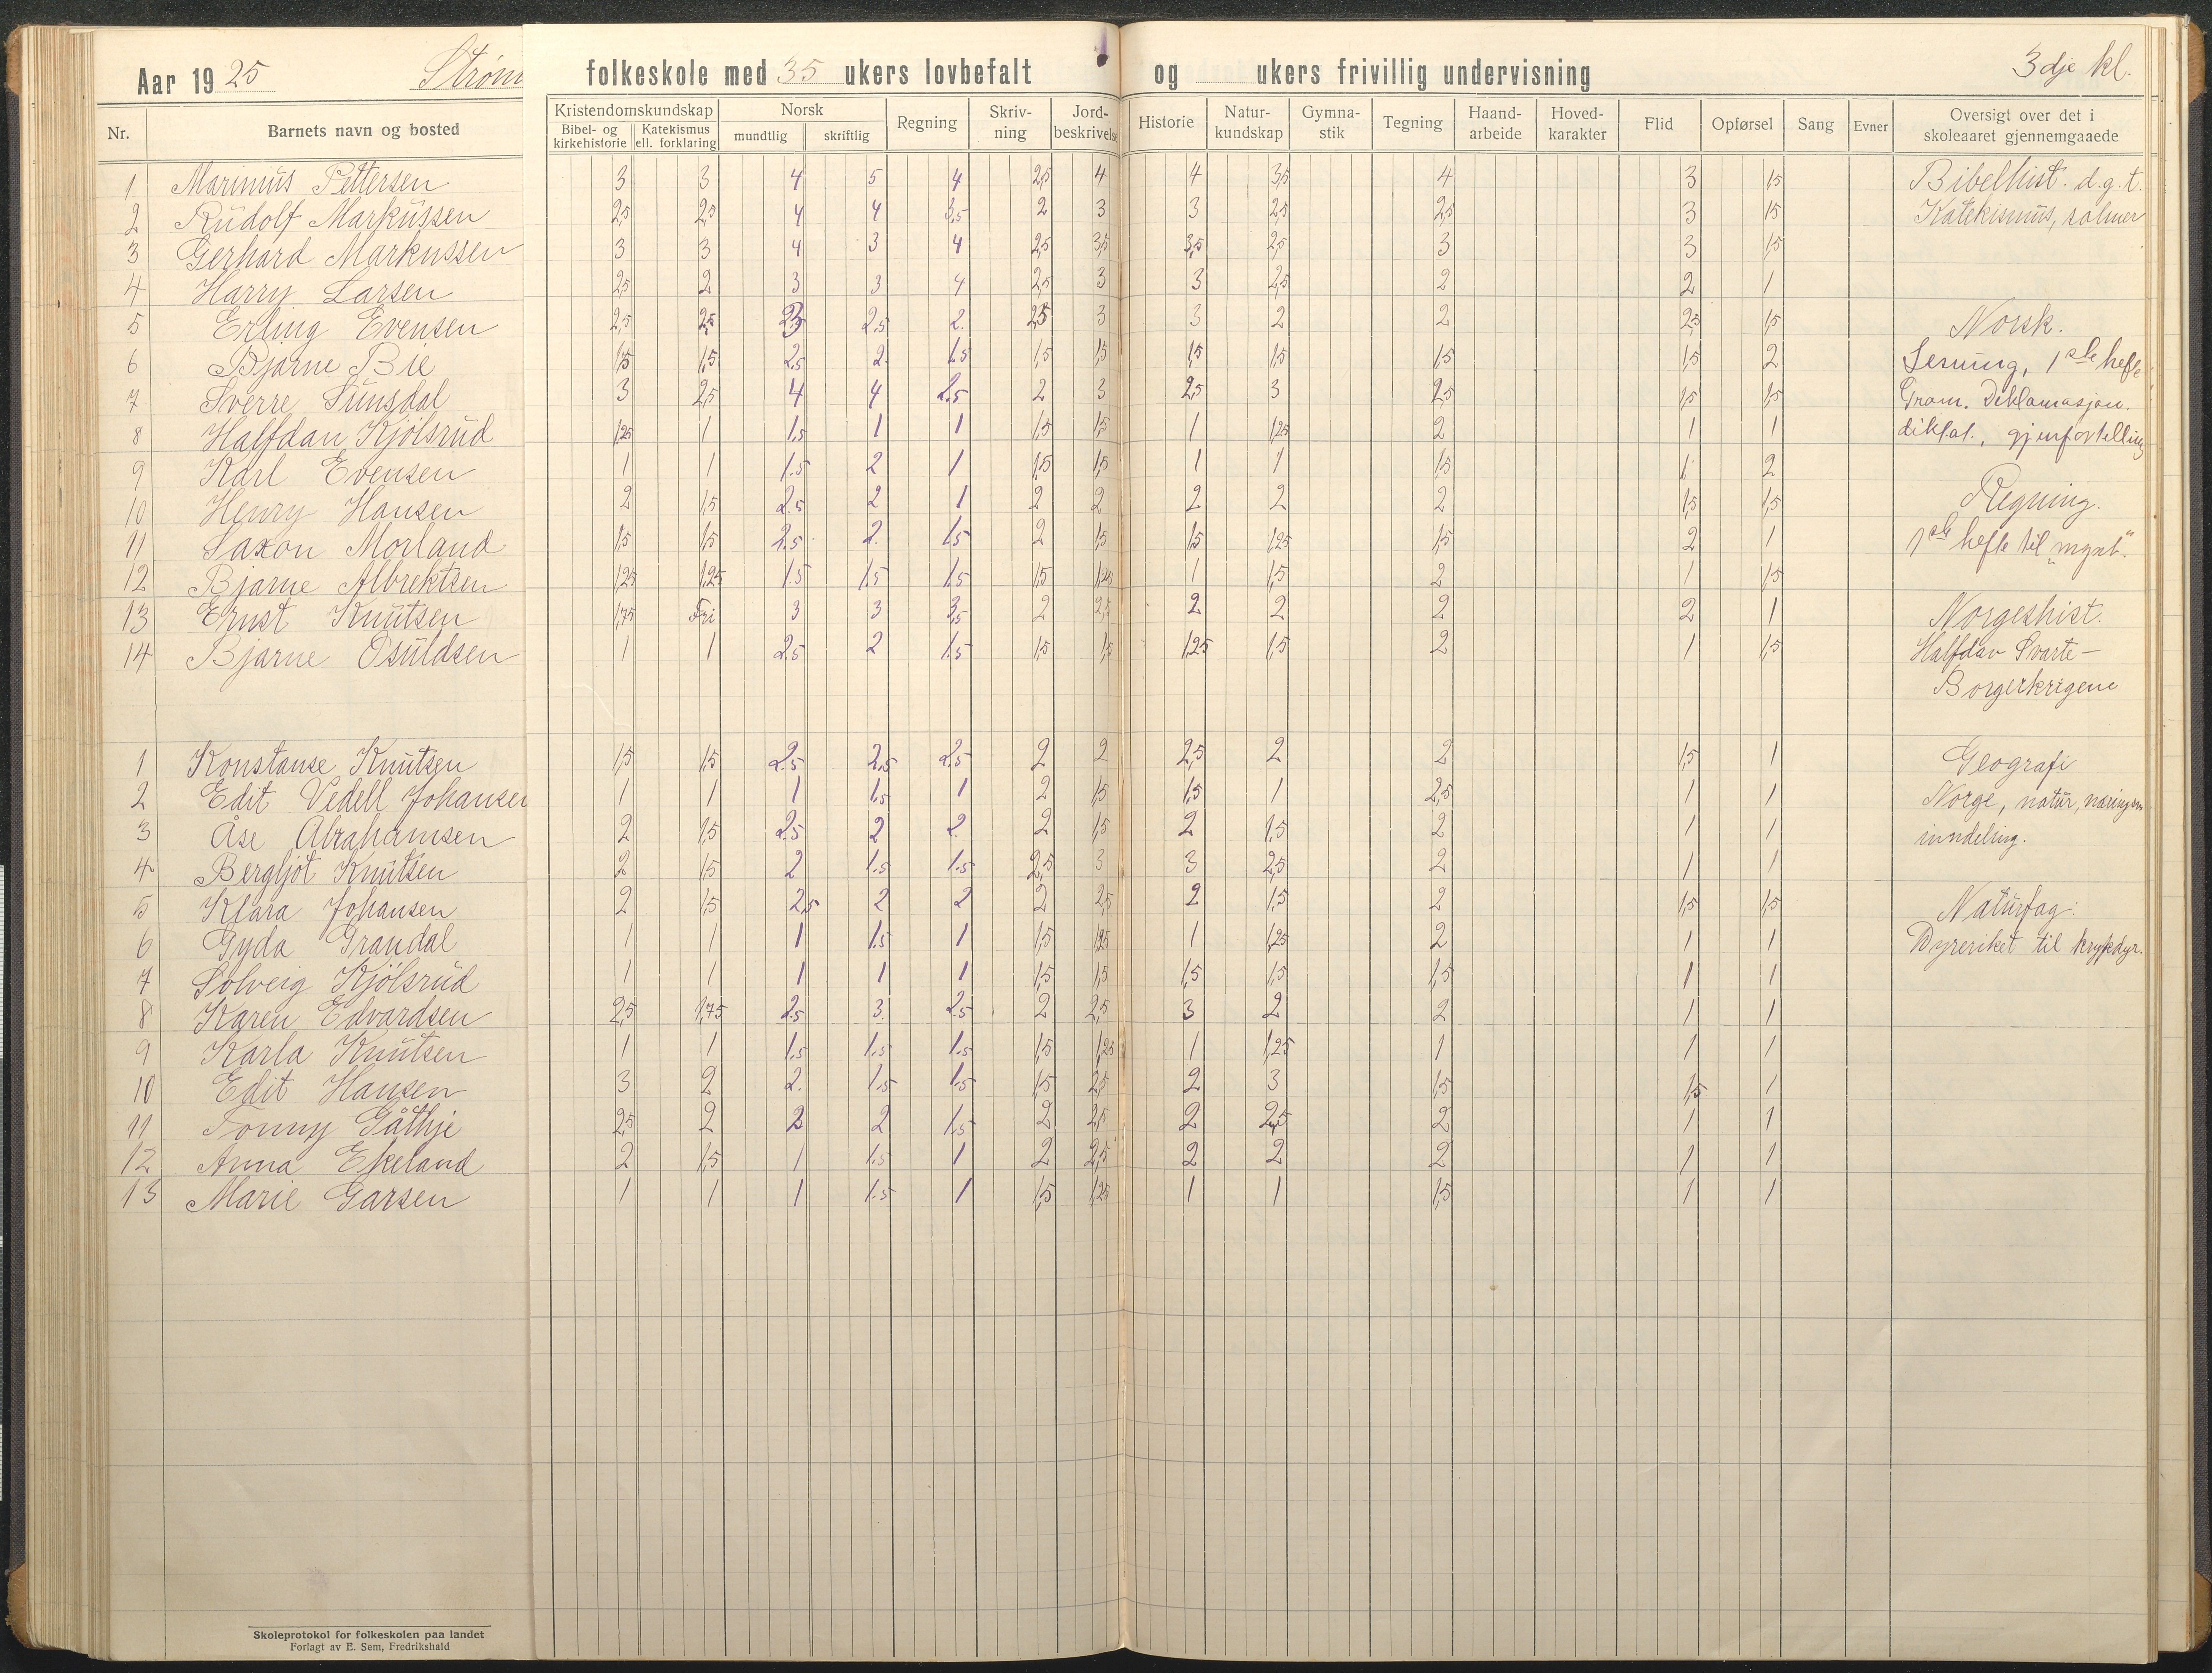 Aar 1925 Strøm folkeskole med 35 ukers lovbefalt og ukers frivillig undervisning 3dje kl.
Nr. Barnets navn og bosted Kristendomskundskap Bibel- og kirkehistorie Katekismus ell. forklaring Norsk mundtlig skriftlig Regning Skriv-ning Jord-beskrivelse Historie Natur-kundskap Gymna-stik Tegning Haand-arbeide Hoved-karakter Flid Opførsel Sang Evner Oversigt over det i skoleaaret gjennemgaaede
1 Marinius Pettersen 3 3 4 5 4 2,5 4 4 3,5 4 3 1,5 Bibelhist. d.g.t.
2 Rudolf Markussen 2,5 2,5 4 4 3,5 2 3 3 2,5 2,5 3 1,5 Katekismus, salmer
3 Gerhard Markussen 3 3 4 3 4 2,5 3,5 3,5 2,5 3 3 1,5
4 Harry Larsen 2,5 2 3 3 4 2,5 3 3 2,5 2 2 1
5 Erling Evensen 2,5 2,5 2.5 2. 2,5 3 3 2 2 2,5 1,5 Norsk.
6 Bjarne Bie 1,5 1,5 2.5 2. 1.5 1,5 1,5 1,5 1,5 1,5 1,5 2 Lesning, 1ste hefte
7 Sverre Sunsdal 3 2,5 4 4 2.5 2 3 2,5 3 2,5 1,5 1,5 Gram. Deklamasjon.
8 Halfdan Kjölsrud 1,25 1 1.5 1 1 1,5 1,5 1 1,25 2 1 1 diktat., gjenfortelling
9 Karl Evensen 1 1 1.5 2 1 1,5 1,5 1 1 1,5 1 2
10 Henry Hansen 2 1,5 2.5 2 1 2 2 2 2 2 1,5 1,5 Regning.
11 Saxon Morland 1,5 1,5 2.5 2. 1.5 2 1,5 1,5 1,25 1,5 2 1 1ste hefte til
12 Bjarne Albrektsen 1,25 1,25 1.5 1.5 1.5 1,5 1,25 1 1,5 2 1 1,5
13 Ernst Knutsen 1,75 Fri 3 3 3,5 2 2,5 2 2 2 2 1 Norgeshist.
14 Bjarne Osuldsen 1 1 2.5 2 1.5 1,5 1,5 1,25 1,5 2 1 1,5 Halfdan Svarte –
Borgerkrigene
1 Konstanse Knutsen 1,5 1,5 2.5 2.5 2.5 2 2 2,5 2 2 1,5 1 Geografi
2 Edit Vedell Johansen 1 1 1 1.5 1 2 1,5 1,5 1 2,5 1 1 Norge, natur, næringsv.
3 Åse Abrahamsen 2 1,5 2.5 2 2. 2 1,5 2 1,5 2 1 1 inndeling.
4 Bergljot Knutsen 2 1,5 2 1.5 1.5 2,5 3 3 2,5 2 1 1
5 Klara Johansen 2 1,5 2,5 2 2 2 2,5 2 1,5 2 1,5 1,5 Naturfag:
6 Gyda Grandal 1 1 1 1.5 1 1,5 1,25 1 1,25 2 1 1 Dyreriket til krypdyr.
7 Solveig Kjölsrud 1 1 1 1 1 1,5 1,5 1,5 1,5 1,5 1 1
8 Karen Edvardsen 2,5 1,75 2.5 3. 2.5 2 2,5 3 2 2 1 1
9 Karla Knutsen 1 1 1.5 1.5 1.5 1,5 1,25 1 1,25 1 1 1
10 Edit Hansen 3 2 2. 1.5 1.5 1,5 2,5 2 3 1,5 1,5 1
11 Tonny Gåthje 2,5 2 2 1.5 2 2,5 2 2,5 2 1 1
12 Anna Ekeland 2 1,5 1 1.5 1 2 2,5 2 2 2 1 1
13 Marie Garsen 1 1 1 1.5 1 1,5 1,25 1 1 1,5 1 1
Skoleprotokol for folkeskolen paa landet
Forlagt av E. Sem, Fredrikshald